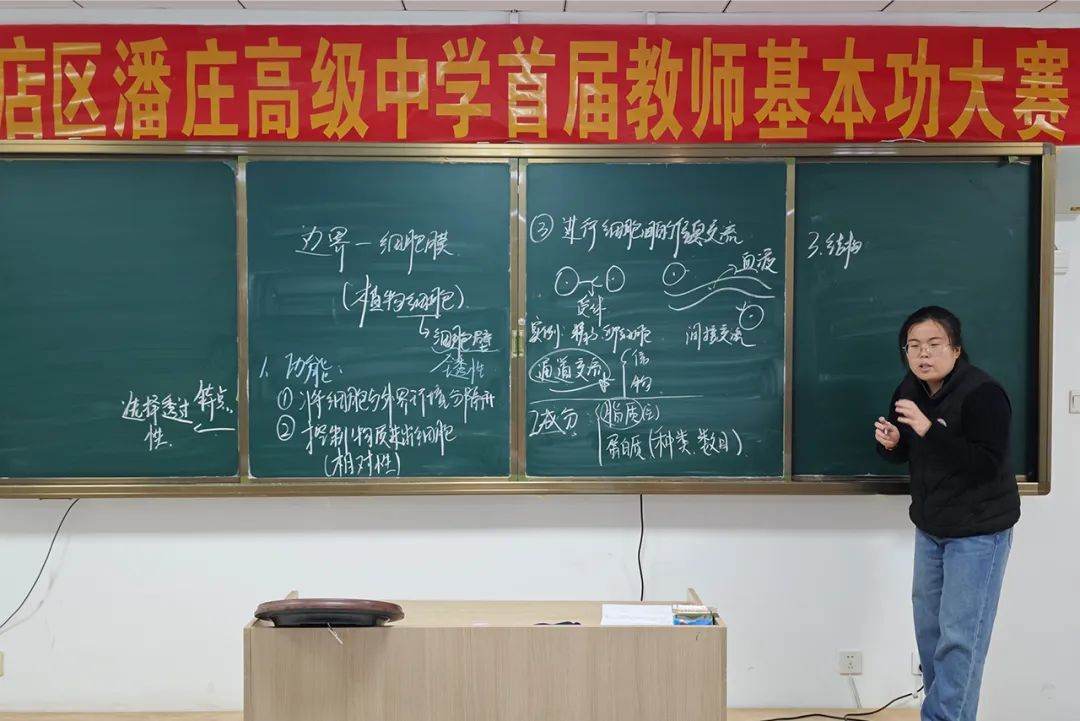 店区潘庄高级中学首届教师基本功大赛
选择透过 特点
性.
边界—细胞膜
(植物细胞)
→细胞壁
全透性
1. 功能:
① 将细胞与外界环境分隔开
② 控制物质进出细胞
(相对性)
③ 进行细胞间的信息交流
血液
受体
实例: 精子 卵细胞
间接交流
通道交流
信
物
2成分
脂质
蛋白质(种类、数目)
3.结构